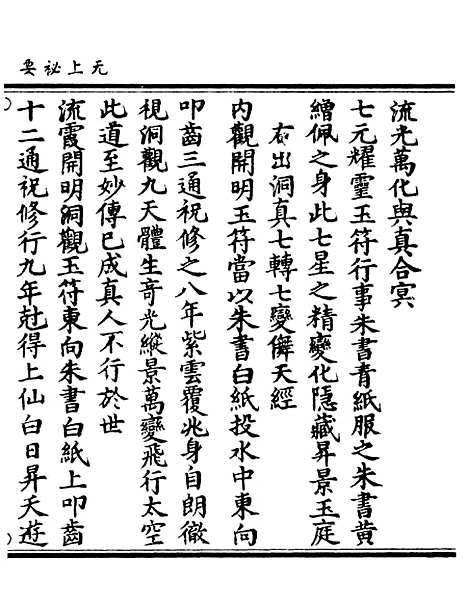 无上祕要
流光萬化與真合冥
七元耀靈玉符行事朱書青紙服之朱書黄
繒佩之身此七星之精變化隱藏昇景玉庭
右出洞真七轉七變儛天經
内觀開明玉符當以朱書白紙投水中東向
叩齒三通祝修之八年紫雲覆兆身自朗徹
視洞觀九天體生竒光縱景萬變飛行太空
此道至妙傳已成真人不行於世
流霞開明洞觀玉符東向朱書白紙上叩齒
十二通祝修行九年尅得上仙白日昇天遊